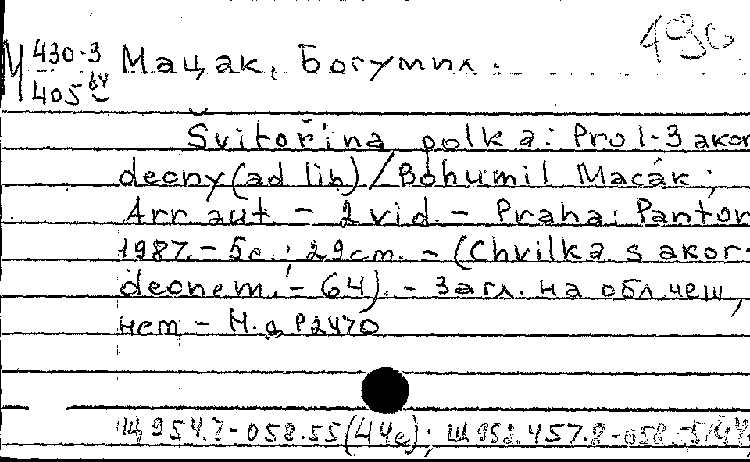 М 430-3 Мацак, Богумил. 196
405 64
Švitořina polka: Pro 1-3 akor
deony (ad lib) / Bohumil Macák;
Arr. aut. - 2 vid. - Praha: Panton
1987. - 5 с.; 29 cm. - (Chvilka s akor-
deonem; - 64). - Загл. на обл. чеш,
нем - Н.д. P 2470
Щ954.7-058.55(44е); Щ952.457.8-058.5